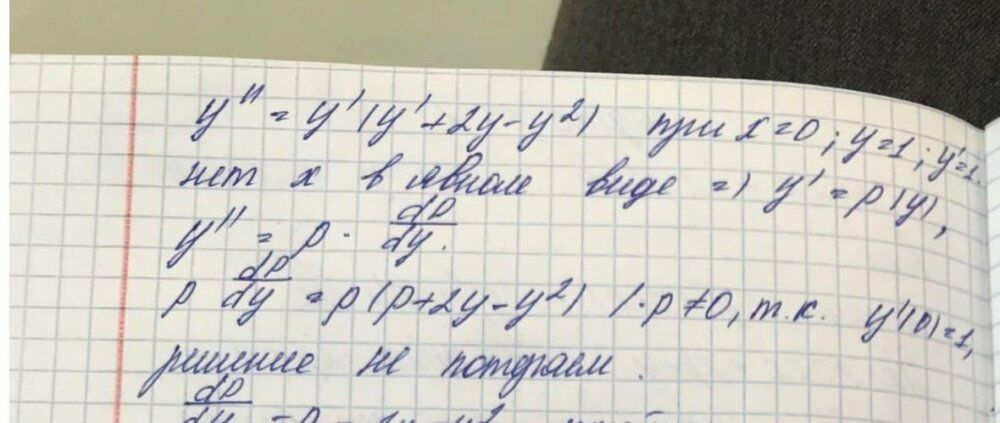 y'' = y'(y'+2y-y²) при x=0; y=1; y'=1.
нет x в явном виде => y' = p(y),
y'' = p · dp/dy.
p dp/dy = p(p+2y-y²) /: p≠0, т.к. y'(0)=1,
решение не потеряем.
dp/dy = p